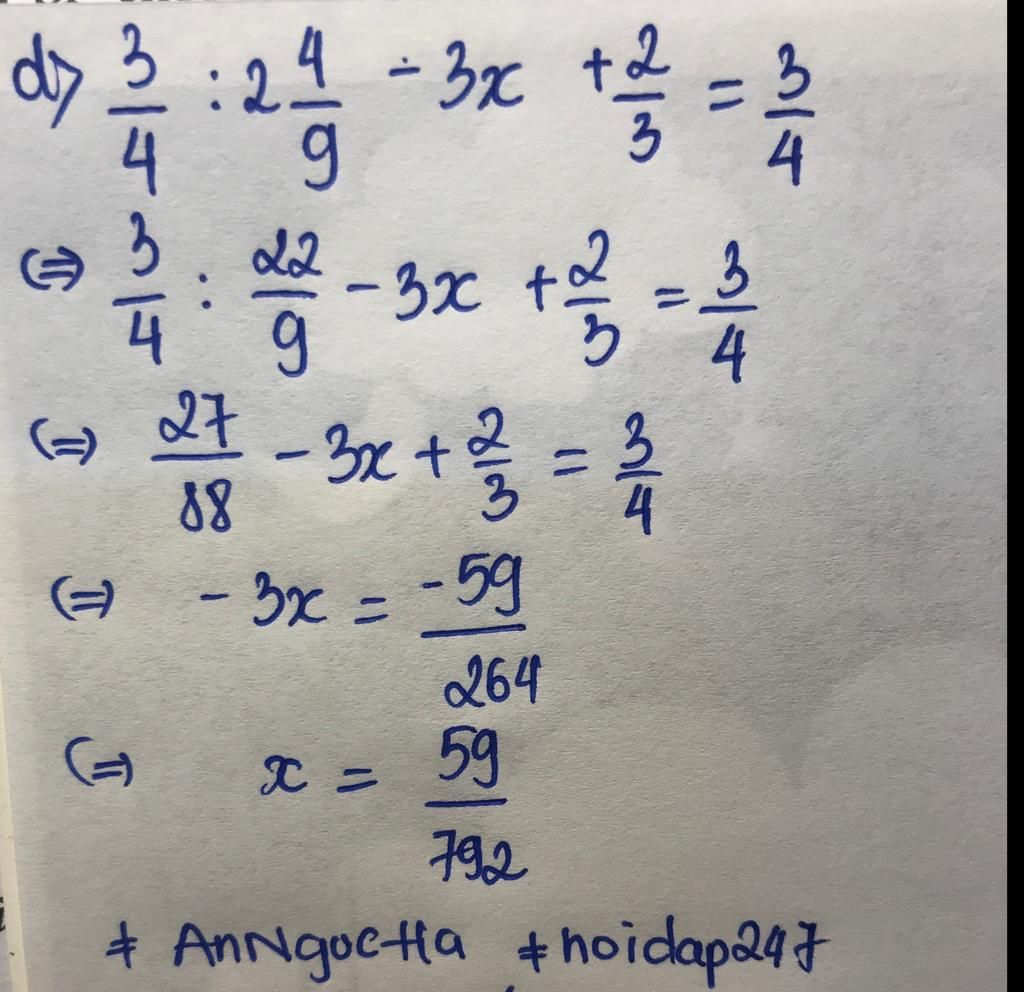 d) 3/4 : 2 4/9 - 3x + 2/3 = 3/4
(=) 3/4 : 22/9 - 3x + 2/3 = 3/4
(=) 27/88 - 3x + 2/3 = 3/4
(=) - 3x = -59/264
(=) x = 59/792
# AnNgocHa #hoidap247